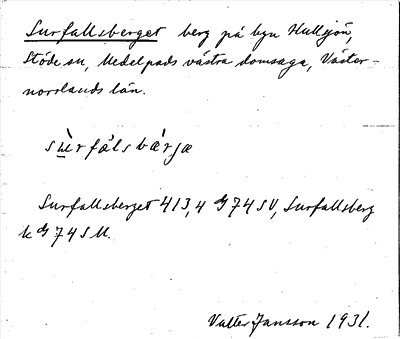 Surfallsberget berg på byn Hullsjön,
Stöde sn, Medelpads västra domsaga, Väster-
norrlands län.
sùrfálsbærjæ
Surfallsberget 413,4 G 74 SV, Surfallsberg
k G 74 SM.
Valter Jansson 1931.